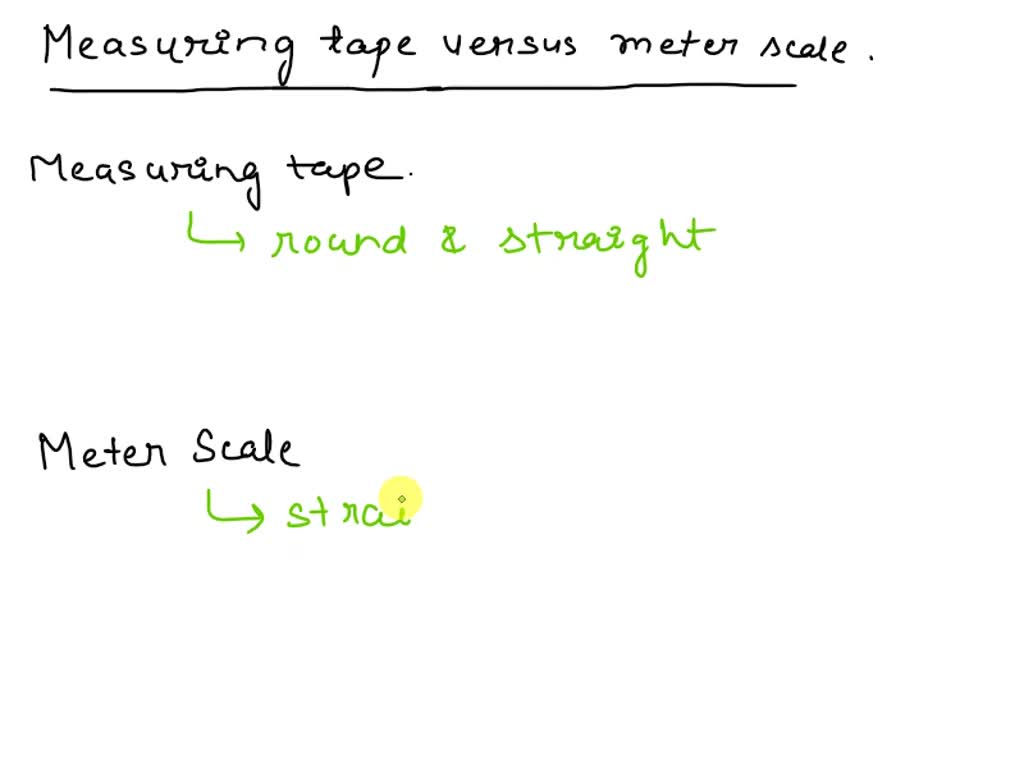 Measuring tape versus meter scale.
Measuring tape.
↳ round & straight
Meter Scale
↳ strai